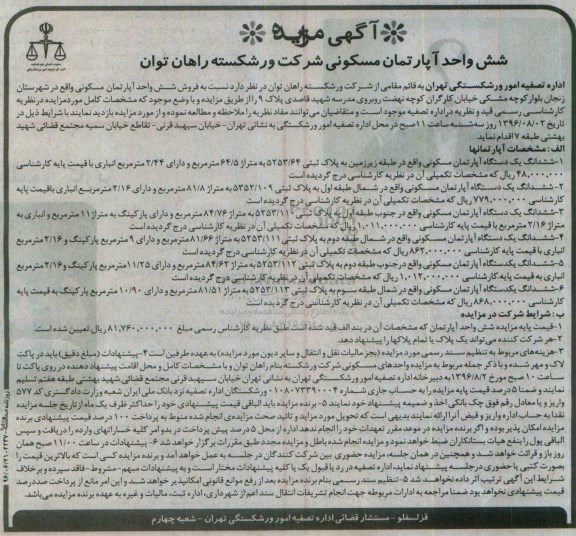 آگهی مزایده
شش واحد آپارتمان مسکونی شرکت ورشکسته راهان توان
اداره تصفیه امور ورشکستگی تهران به قائم مقامی از شرکت ورشکسته راهان توان در نظر دارد نسبت به فروش شش واحد آپارتمان مسکونی واقع در شهرستان
زنجان بلوار کوچه مشکی خیابان کارگران کوچه نهضت روبروی مدرسه شهید قاصدی پلاک ۹ را از طریق مزایده و با وضع موجود که مشخصات کامل مورد مزایده در نظریه
کارشناسی رسمی قید و نظریه در اداره تصفیه موجود است و متقاضیان می‌توانند مفاد نظریه را ملاحظه و مطالعه نموده و از مورد مزایده بازدید نمایند با شرایط ذیل در
تاریخ ۱۳۹۶/۰۸/۰۲ روز سه‌شنبه ساعت ۱۱ صبح در محل اداره تصفیه امور ورشکستگی به نشانی تهران - خیابان سپهبد قرنی - تقاطع خیابان سمیه مجتمع قضائی شهید
بهشتی طبقه ۷ اقدام نماید.
الف: مشخصات آپارتمانها
۱- ششدانگ یک دستگاه آپارتمان مسکونی واقع در طبقه زیرزمین به پلاک ثبتی ۵۲۵۳/۶۴ به متراژ ۶۴/۵ مترمربع و دارای ۲/۴۴ متر انباری با قیمت پایه کارشناسی
ریال که مشخصات تکمیلی آن در نظریه کارشناسی درج گردیده است
۲- ششدانگ یک دستگاه آپارتمان مسکونی واقع در شمال طبقه اول به پلاک ثبتی ۵۲۵۳/۱۰۹ به متراژ ۸۱/۸ مترمربع و دارای ۲/۱۶ مترمربع انباری با قیمت پایه
کارشناسی ۷۷۹,۰۰۰,۰۰۰ ریال که مشخصات تکمیلی آن در نظریه کارشناسی درج گردیده است
۳- ششدانگ یک دستگاه آپارتمان مسکونی واقع در جنوب طبقه اول به پلاک ثبتی ۵۲۵۳/۱۱۰ به متراژ ۸۴/۷۶ مترمربع و دارای پارکینگ به متراژ ۱۱ مترمربع و انباری به
متراژ ۲/۱۶ مترمربع با قیمت پایه کارشناسی ۱,۰۱۱,۰۰۰,۰۰۰ ریال که مشخصات تکمیلی آن در نظریه کارشناسی درج گردیده است
۴- ششدانگ یک دستگاه آپارتمان مسکونی واقع در شمال طبقه دوم به پلاک ثبتی ۵۲۵۳/۱۱۱ به متراژ ۸۱/۶۶ مترمربع و دارای ۹ مترمربع پارکینگ و ۲/۱۶ مترمربع
انباری با قیمت پایه کارشناسی ۸۶۲,۰۰۰,۰۰۰ ریال که مشخصات تکمیلی آن در نظریه کارشناسی درج گردیده است
۵- ششدانگ یک دستگاه آپارتمان مسکونی واقع در جنوب طبقه دوم به پلاک ثبتی ۵۲۵۳/۱۱۲ به متراژ ۸۴/۶۲ مترمربع و دارای ۱۱/۲۵ مترمربع پارکینگ و ۲/۱۶ مترمربع
انباری به قیمت پایه کارشناسی ۱,۰۱۲,۰۰۰,۰۰۰ ریال که مشخصات تکمیلی آن در نظریه کارشناسی درج گردیده است
۶- ششدانگ یک دستگاه آپارتمان مسکونی واقع در شمال طبقه سوم به پلاک ثبتی ۵۲۵۳/۱۱۳ به متراژ ۸۱/۵۱ مترمربع و دارای ۱۰/۹۰ مترمربع پارکینگ به قیمت پایه
کارشناسی ۸۶۸,۰۰۰,۰۰۰ ریال که مشخصات تکمیلی آن در نظریه کارشناسی درج گردیده است
ب: شرایط شرکت در مزایده
۱- قیمت پایه مزایده شش واحد آپارتمان که مشخصات آن در بند الف قید شده است طبق نظریه کارشناس رسمی مبلغ ریال تعیین شده است.
۲- هر شرکت کننده می‌تواند یک پلاک یا تمام پلاکها را پیشنهاد دهد.
۳- هزینه‌های مربوط به تنظیم سند رسمی مورد مزایده (بجز مالیات نقل و انتقال و سایر دیون مورد مزایده) به عهده طرفین است ۴- پیشنهادات (مبلغ دقیق) باید در پاکت
لاک و مهر شده و با ذکر جمله مربوط به مزایده واحدهای مسکونی شرکت ورشکسته بنام راهان توان و با مشخصات کامل و محل اقامت پیشنهاد دهنده در روی پاکت تا
ساعت ۱۰ صبح مورخ ۱۳۹۶/۸/۲ به دبیرخانه اداره تصفیه امور ورشکستگی تهران به نشانی تهران خیابان سپهبد قرنی مجتمع قضائی شهید بهشتی طبقه هفتم تسلیم
نمایند و ضمنا ۵ درصد قیمت پایه مزایده را به حساب جاری شماره ورشکستگان اداره تصفیه نزد بانک ملی ایران شعبه وزارت دادگستری کد ۵۷۷
واریز و یا معادل رقم فوق چک بانکی اخذ و ضمیمه پیشنهاد خود نمایند ۵- برنده مزایده باید الباقی قیمت پیشنهادی خود را حداکثر ظرف یک ماه از تاریخ جلسه مزایده
نقدا به حساب اداره واریز و قبض آنرا ارائه نمایند بدیهی است که تحویل مورد مزایده و تائید صحت مزایده‌ی انجام شده منوط به پرداخت ۱۰۰ درصد قیمت پیشنهادی برنده
مزایده امکان پذیر بوده و اگر برنده مزایده در موعد مقرر تعهدات خود را انجام ندهد اداره از محل ۵ درصد پیش پرداخت در بدو امر کلیه خسارتهای وارده را دریافت و سپس
الباقی پول را بنفع هیات بستانکاران ضبط خواهد نمود و مزایده انجام شده باطل و مزایده مجدد طبق مقررات برگزار خواهد شد ۶- پیشنهادات در ساعت ۱۱/۰۰ صبح همان
روز باز و قرائت خواهد شد و همچنین در همان جلسه، مزایده حضوری بین شرکت کنندگان در جلسه به عمل خواهد آمد و برنده مزایده کسی است که بالاترین قیمت را
بصورت کتبی یا حضوری در جلسه پیشنهاد نماید، اداره تصفیه در رد یا قبول یک یا کلیه پیشنهادات مختار است و به پیشنهادات مبهم - مشروط - فاقد سپرده و برخلاف
شرایط این آگهی ترتیب اثر داده نخواهد شد ۵- تنظیم سند رسمی بنام برنده مزایده بعد از رفع موانع قانونی امکانپذیر خواهد شد و این امر مانع از پرداخت صد درصد
قیمت پیشنهادی نخواهد بود ضمنا مراجعه به ادارات مربوطه جهت انجام تشریفات انتقال سند اعم از شهرداری، اداره ثبت، مالیات و غیره به عهده برنده مزایده می‌باشد.
قزلسفلو - مستشار قضائی اداره تصفیه امور ورشکستگی تهران - شعبه چهارم